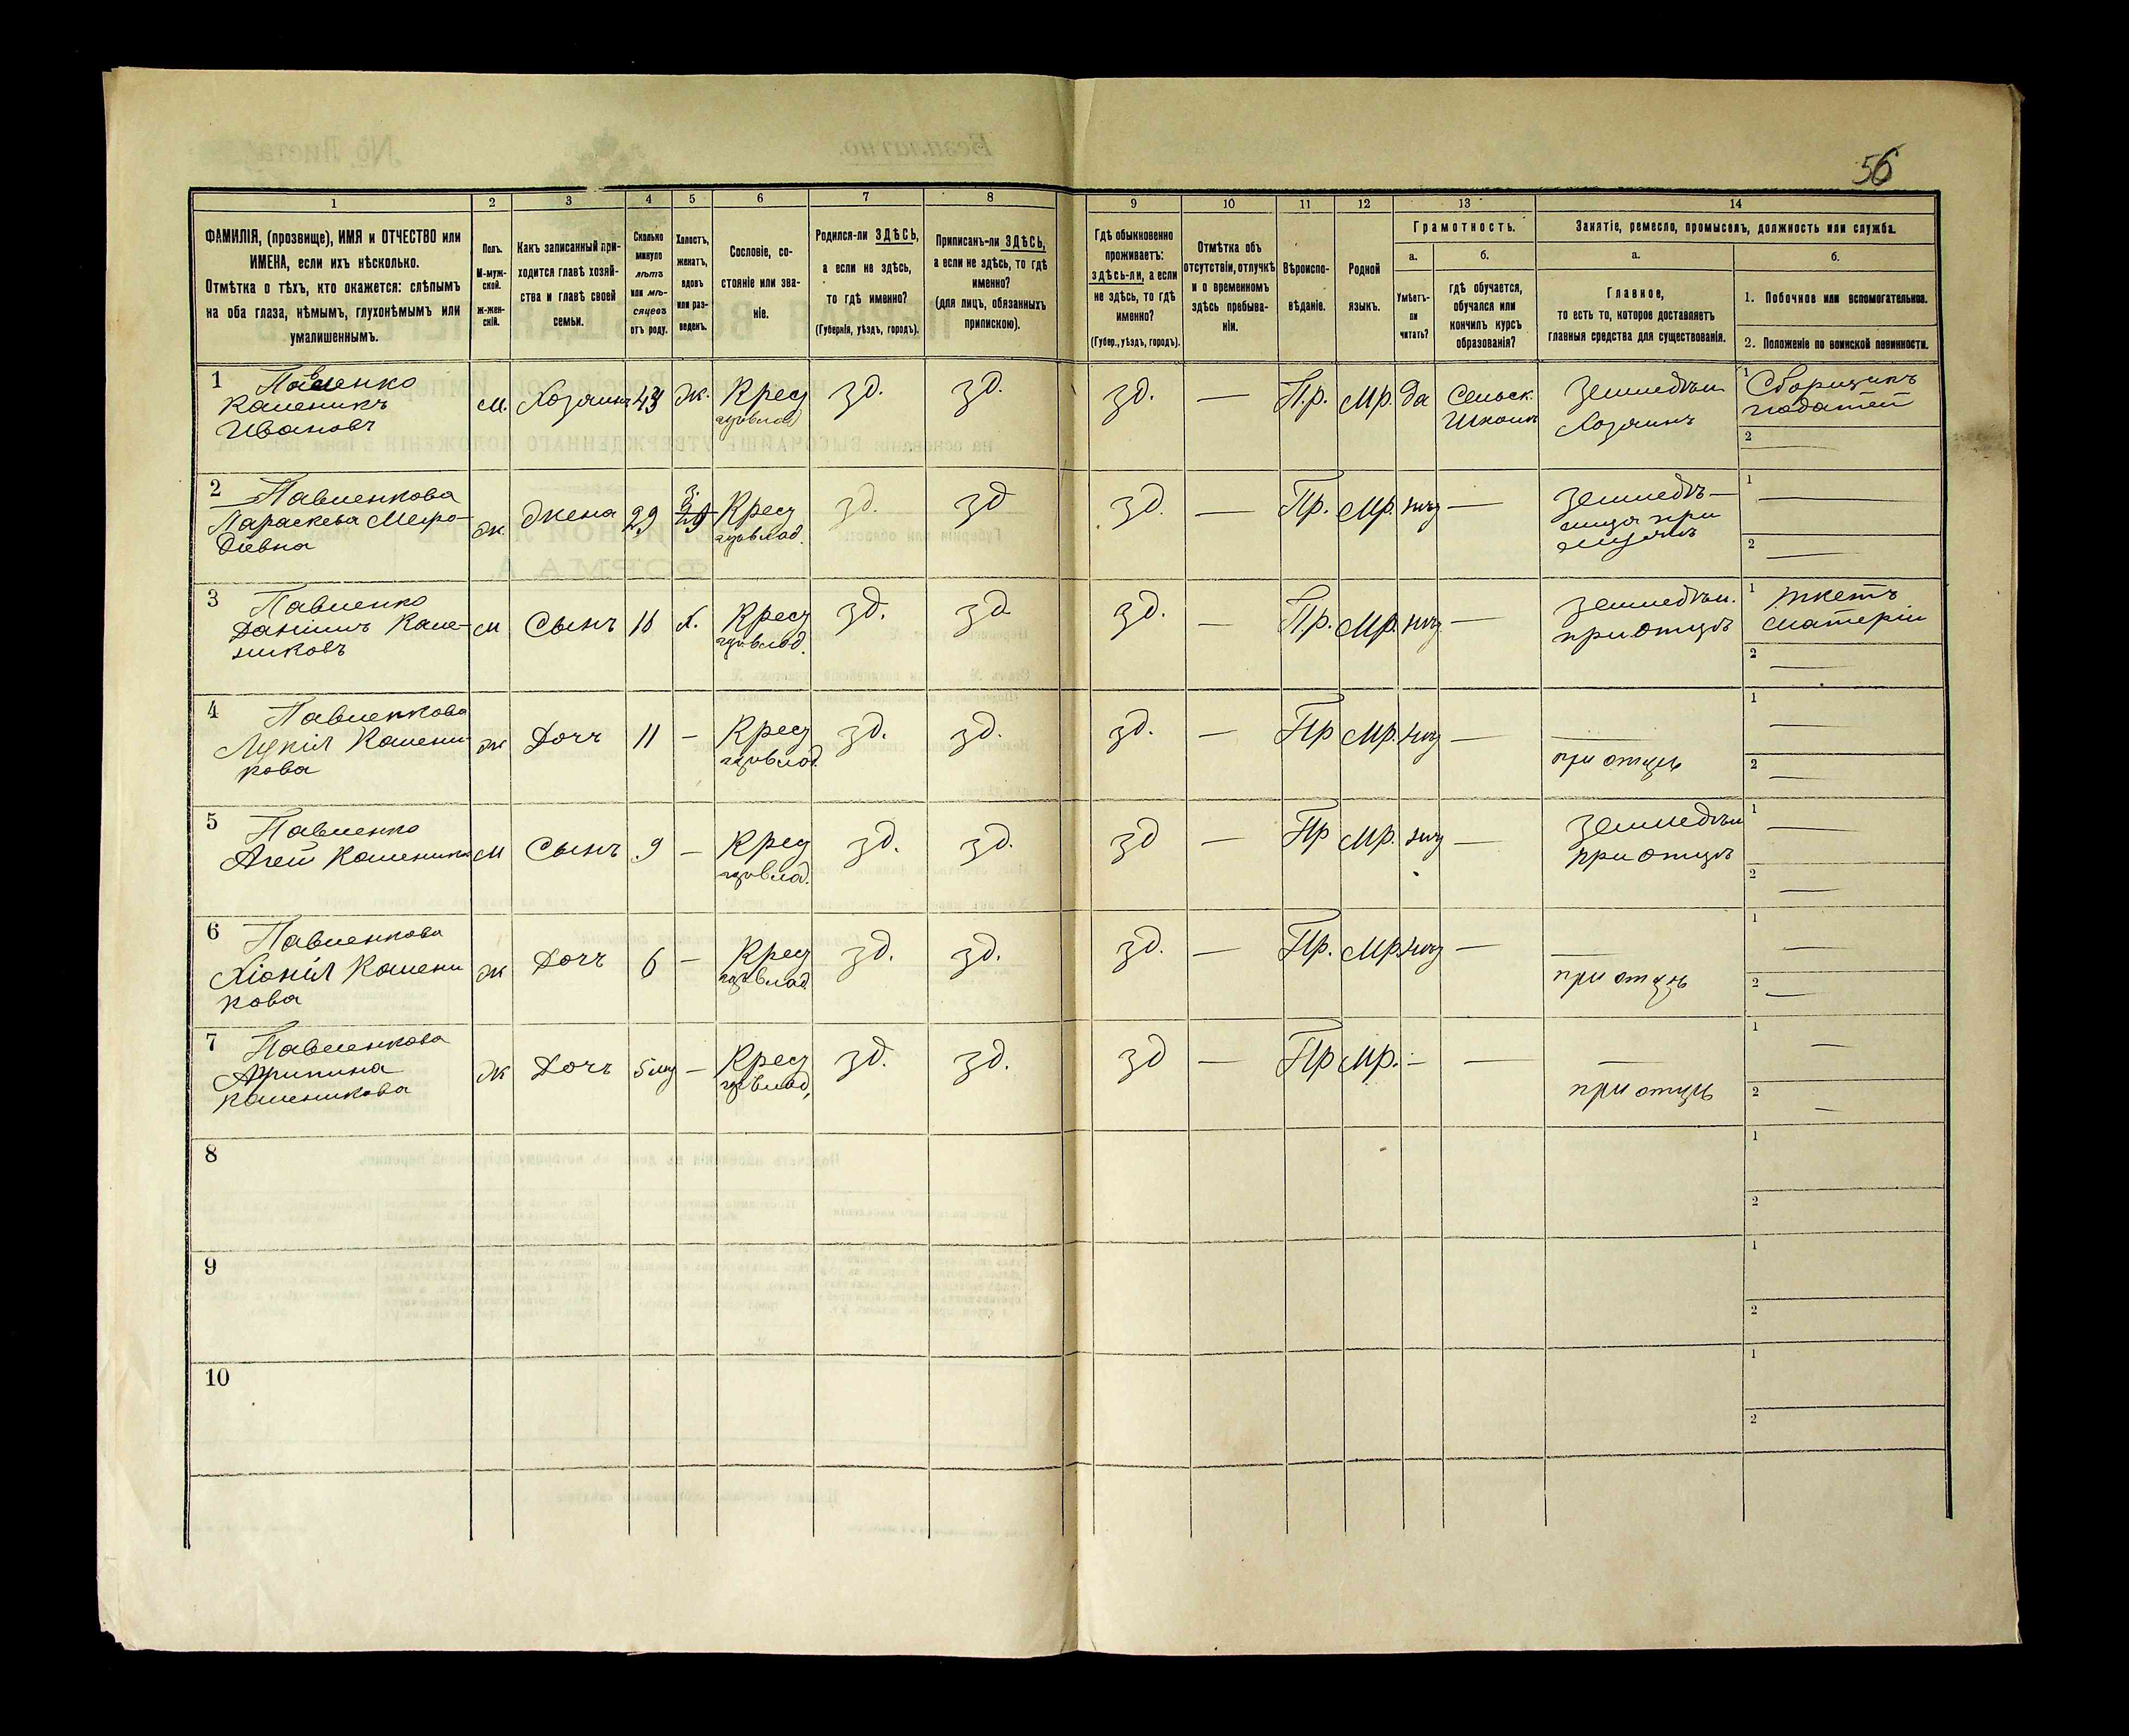 56
1 2 3 4 5 6 7 8 9 10 11 12 13 14
ФАМИЛІЯ, (прозвище), ИМЯ и ОТЧЕСТВО или
ИМЕНА, если ихъ нѣсколько.
Отмѣтка о тѣхъ, кто окажется: слѣпымъ
на оба глаза, нѣмымъ, глухонѣмымъ или
умалишеннымъ.
Полъ.
М-муж-
ской.
ж-жен-
скій.
Какъ записанный при-
ходится главѣ хозяй-
ства и главѣ своей
семьи.
Сколько
минуло
лѣтъ
или мѣ-
сяцевъ
отъ роду.
Холостъ,
женатъ,
вдовъ
или раз-
веденъ.
Сословіе, со-
стояніе или зва-
ніе.
Родился-ли ЗДѢСЬ,
а если не здѣсь,
то гдѣ именно?
(Губернія, уѣздъ, городъ).
Приписанъ-ли ЗДѢСЬ,
а если не здѣсь, то гдѣ
именно?
(для лицъ, обязанныхъ
припискою).
Гдѣ обыкновенно
проживаетъ:
здѣсь-ли, а если
не здѣсь, то гдѣ
именно?
(Губер., уѣздъ, городъ).
Отмѣтка объ
отсутствіи, отлучкѣ
и о временномъ
здѣсь пребыва-
ніи.
Вѣроиспо-
вѣданіе.
Родной
языкъ.
Грамотность.
а.
Умѣетъ-
ли
читать?
б.
гдѣ обучается,
обучался или
кончилъ курсъ
образованія?
Занятіе, ремесло, промыселъ, должность или служба.
а.
Главное,
то есть то, которое доставляетъ
главныя средства для существованія.
б.
1. Побочное или вспомогательное.
2. Положеніе по воинской повинности.
1 Павленко
Каленикъ
Ивановъ
м. Хозяинъ 43 ж. Крес зд. зд. зд. — Пр. Мр. да
Сельск.
Школа
Земледѣл
Хозяинъ
1 Сборщикъ
податей
2 —
2 Павленкова
Параскева Мефо-
діевна
ж Жена 29 з. Крес зд. зд зд. — Пр. Мр. —
1 —
2 —
3 Павленко
Даніилъ Кале-
никовъ
м Сынъ 18 х. Крес зд. зд зд. — Пр. Мр. —
Земледѣл.
при отцѣ
1 Ткетъ
матеріи
2 —
4 Павленкова
Калени-
кова
ж Дочь 11 — Крес зд. зд. зд. — Пр Мр. —
—
при отцѣ
1 —
2 —
5 Павленко
Агей Калеников
м Сынъ 9 — Крес зд. зд. зд — Пр Мр. —
Земледѣл
при отцѣ
1 —
2 —
6 Павленкова
Хіонія Калени
кова
ж Дочь 6 — Крес зд. зд. зд. — Пр. Мр. —
—
при отцѣ
1 —
2 —
7 Павленкова
Агрипина
Каленикова
ж Дочь 5 мц — Крес зд. зд. зд — Пр Мр. — —
—
при отцѣ
1 —
2 —
8 1
2
9 1
2
10 1
2